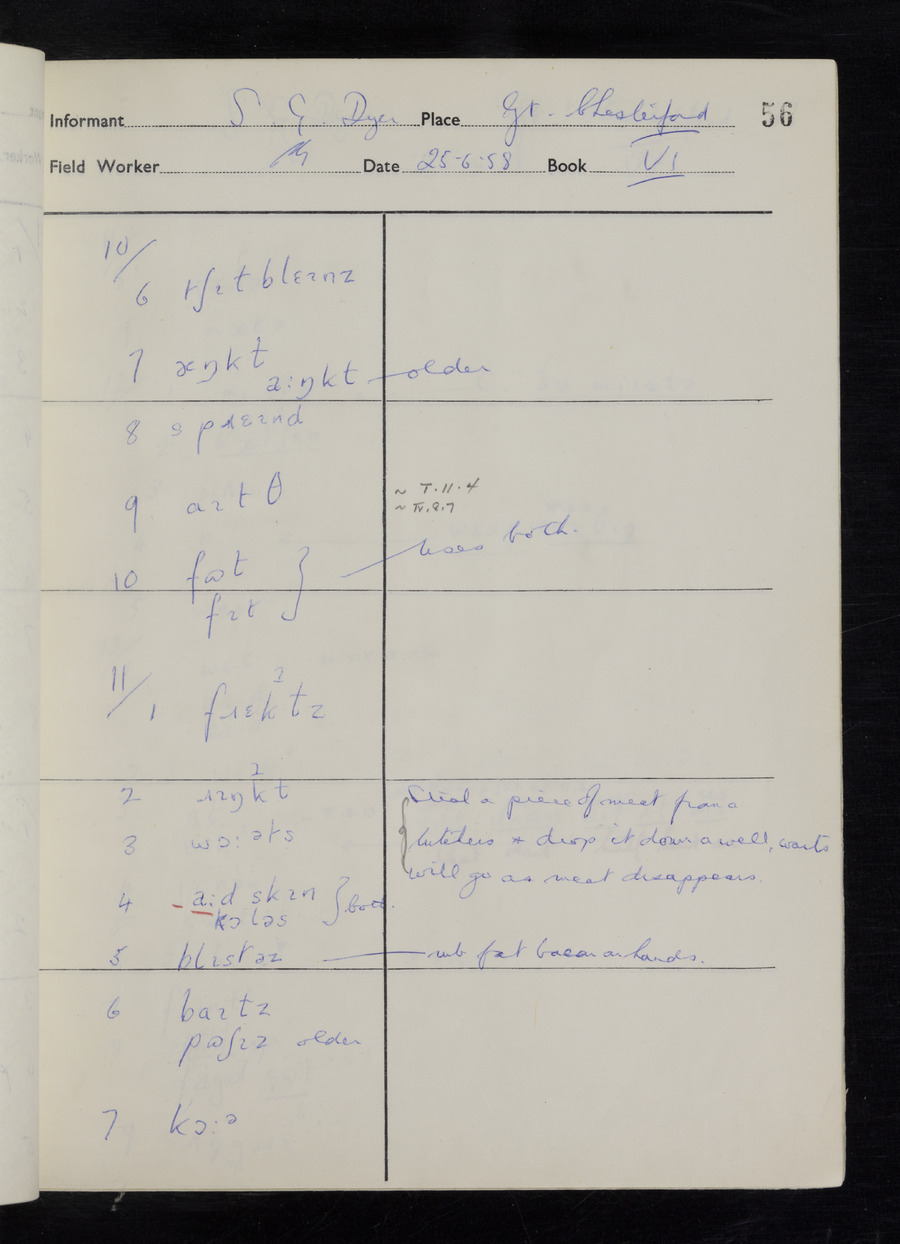 Informant S. G. Dyer Place Gt. Chesterford 56
Field Worker Date 25-6-58 Book VI
10/
6 tʃɪtblɛɪnz
7 æŋkt
a:ŋkt — older
8 spɹɛɪnd
9 aɪtθ ~ V.11.4
~ IV.8.7
10 fɷt } uses both.
fɪt
11/
1 fɹɛkʔtz
2 ɹɪŋkʔt Steal a piece of meat from a
3 wɔ:əts butchers + drop it down a well, warts
will go as meat disappears.
4 a:d skɪn } both.
kɔləs
5 blɪstəz — rub fat bacon on hands.
6 baɪtz
pɷʃɪz older
7 kɔ:ə